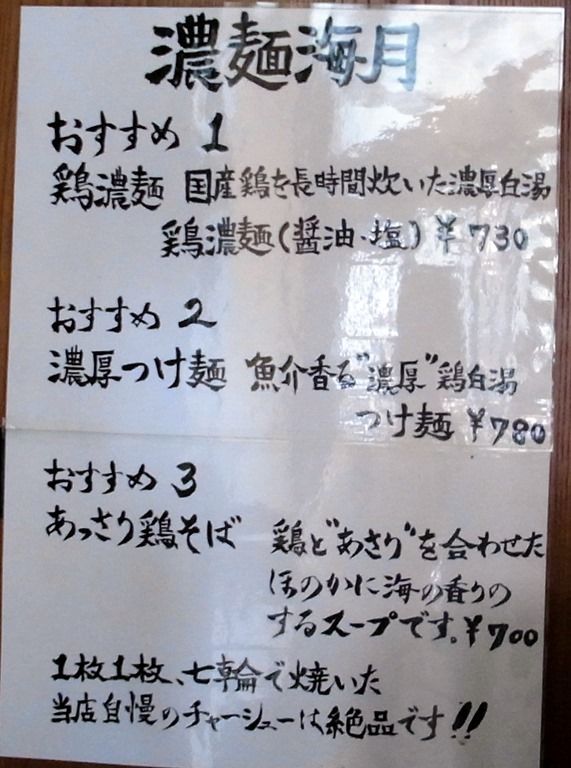 濃麺海月
おすすめ 1
鶏濃麺 国産鶏を長時間炊いた濃厚白湯
鶏濃麺(醤油・塩) ¥730
おすすめ 2
濃厚つけ麺 魚介香る"濃厚"鶏白湯
つけ麺 ¥780
おすすめ 3
あっさり鶏そば 鶏と"あさり"を合わせた
ほのかに海の香りの
するスープです。¥700
1枚1枚、七輪で焼いた
当店自慢のチャーシューは絶品です!!